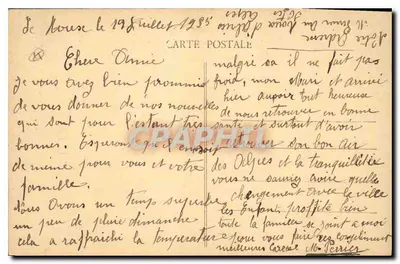 La Mouse le 19 Juillet 1935
Notre Adresse
CARTE POSTALE
Chere Amie
Je vous avez bien prommis
de vous donner de nos nouvelles
qui sont pour l'instant très
bonnes. Esperont qu'il en soit
de meme pour vous et votre
famille.
Nous Avons un temps superbe
un peu de pluie dimanche
cela a raffraichi la temperature
malgré sa il ne fait pas
froid, mon Mari et arrivé
hier aussi tout heureuse
de nous retrouver en bonne
santé et surtout d'avoir
son bon air
des Alpes et la tranquillitée
vous ne sauriez croire quelle
changement avec la ville
les Enfants proffite bien
toute la famille se joint a moi
pour vous faire
meilleures Caresse Mme Perrier
CARTHIL